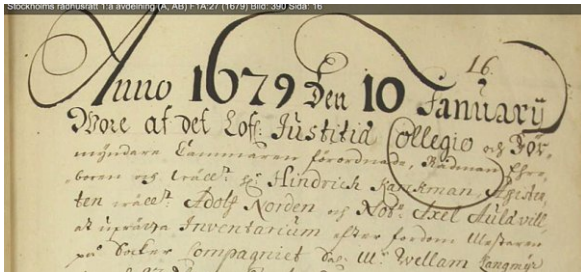 Stockholms rådhusrätt 1:a avdelning (A, AB) F1A:27 (1679) Bild: 390 Sida: 16
16.
Anno 1679 Den 10 January
Wore af det Lofl: Justitiæ Collegio och För-
myndare Cammaren förordnade, Rådman Ehre-
boren och
Hindrich
ten
Adolf Norden och Not: Axel
at uprätta Inventarium efter fordom Mästaren
på Socker Compagniet Sal: Mr: Wellam